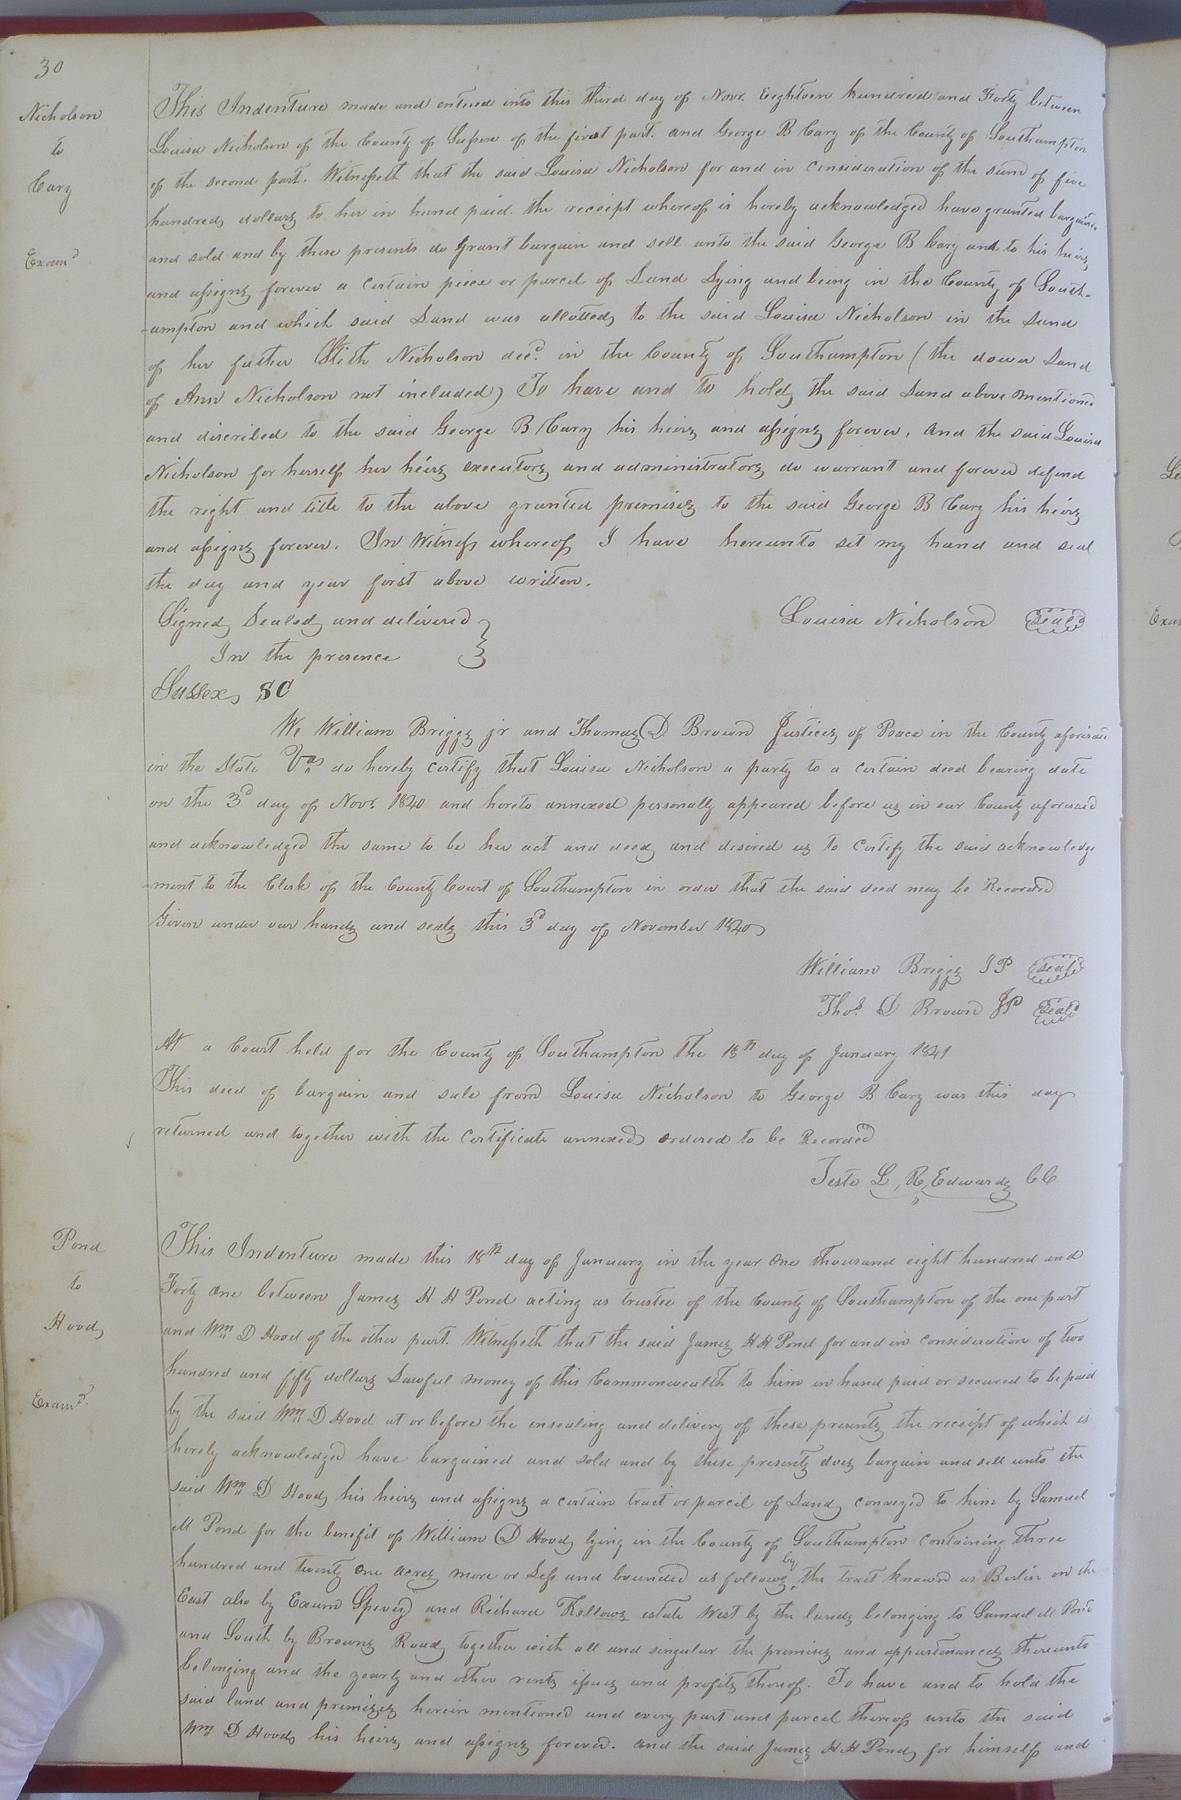 30
Nicholson
to
Cary
Examd
This Indenture made and entered into this third day of Novr. Eighteen hundred and Forty between
Louisa Nicholson of the County of Sussex of the first part. and George B Cary of the County of Southampton
of the second part. Witnesseth that the said Louisa Nicholson for and in consideration of the sum of five
hundred dollars to her in hand paid. the receipt whereof is hereby acknowledged have granted bargained
and sold and by these presents do grant bargain and sell unto the said George B Cary and to his heirs
and assigns forever a certain piece or parcel of Land Lying and being in the County of South-
-ampton and which said Land was allotted to the said Louisa Nicholson in the Land
of her father Stith Nicholson decd. in the County of Southampton (the dower Land
of Ann Nicholson not included) To have and to hold the said Land above mentioned
and discribed to the said George B Cary his heirs and assigns forever. And the said Louisa
Nicholson for herself her heirs executors and administrators do warrant and forever defend
the right and title to the above granted premises to the said George B Cary his heirs
and assigns forever. In Witness whereof I have hereunto set my hand and seal
the day and year first above written.
Signed Sealed and delivered
In the presence
Louisa Nicholson Seal
Sussex SC
We William Briggs jr and Thomas D Brown Justices of Peace in the County aforesaid
in the State Va do hereby certify that Louisa Nicholson a party to a certain deed bearing date
on the 3d day of Novr 1840 and hereto annexed personally appeared before us in our County aforesaid
and acknowledged the same to be her act and deed and disired us to certify the said acknowledge
-ment to the Clerk of the County Court of Southampton in order that the said deed may be Recorded
Given under our hands and seals this 3d day of November 1840
William Briggs JP Seal
Thos. D Brown JP Seal
At a Court held for the County of Southampton the 18th day of January 1841
This deed of bargain and sale from Louisa Nicholson to George B Cary was this day
returned and together with the certificate annexed ordered to be Recorded
Teste L. R. Edwards CC
Pond
to
Hood
Examd.
This Indenture made this 18th day of January in the year one thousand eight hundred and
Forty one between James H H Pond acting as trustee of the County of Southampton of the one part
and Wm D Hood of the other part. Witnesseth that the said James H H Pond for and in consideration of two
hundred and fifty dollars Lawful money of this Commonwealth to him in hand paid or secured to be paid
by the said Wm D Hood at or before the ensealing and delivery of these presents the receipt of which is
hereby acknowledged have bargained and sold and by these presents does bargain and sell unto the
said Wm D Hood his heirs and assigns a certain tract or parcel of Land conveyed to him by Samuel
M Pond for the benefit of William D Hood lying in the County of Southampton containing three
hundred and twenty one acres more or Less and bounded as follows by the tract known as Berlin on the
East also by Exum Spivey and Richard Kellows estate West by the lands belonging to Samuel M Pond
and South by Browns Road together with all and singular the premises and appurtenances thereunto
belonging and the yearly and other rents issues and profits thereof. To have and to hold the
said land and premises herein mentioned and every part and parcel thereof unto the said
Wm D Hood his heirs and assigns forever. and the said James H H Pond for himself and